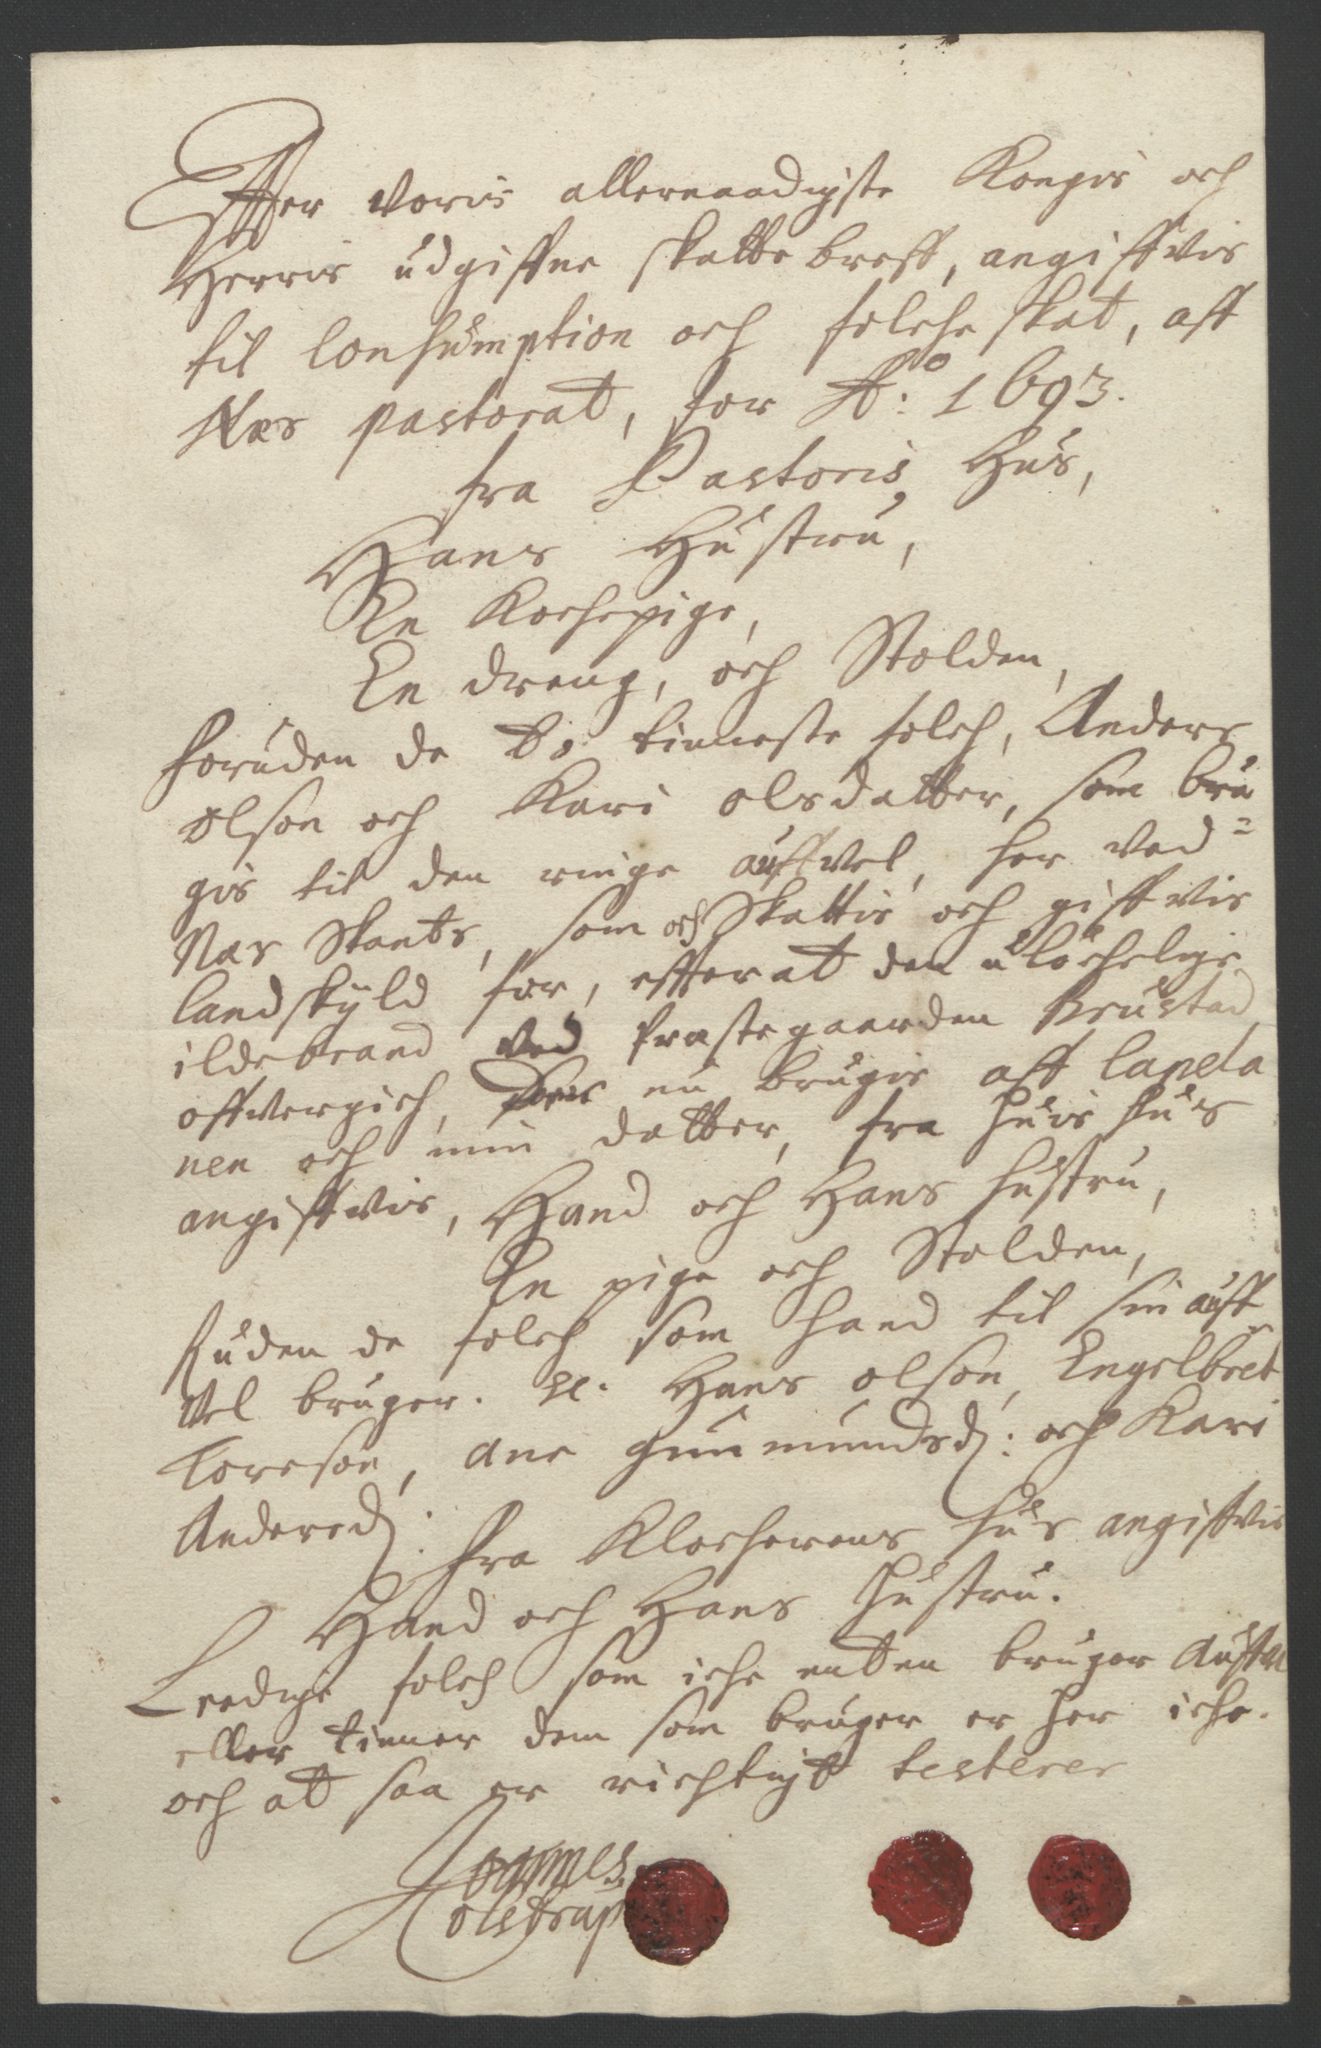 Effter voris allernaadigste Kongis och
Herris udgiffne skattebreff, angiffvis
til Consumption och folche skat, aff
Næs pastorat, for Aᵒ: 1693.
fra Pastoris Hus,
Hans Hustru,
En Kochepige,
En dreng, och Stolden,
foruden de to tienneste folch, Anders
Olson och Kari olsdatter, som bru
gis til den ringe auffvel, her ved=
Næs Skants, som och Skattis och giffvis
landskyld for, effterat den ulöchelige
ildebrand ved Præstegaarden Prustad
offvergich, som nu brugis aff Capela
nen och min datter, fra huis hus
angiffvis, Hand och Hans hustru,
En pige och Stolden,
foruden de folch som hand til sin auff
vel bruger. Hans olson, Engelbret
Toreson, Ane Gunmundsd: och Kari
Andersd:
fra Klocherens hus angiffvis
Hand och Hans hustru.
Leedige folch som iche enten bruger Auffvel
eller tienner dem som bruger er her iche.
och at saa er richtigt testerer
Joannes
Colstrup